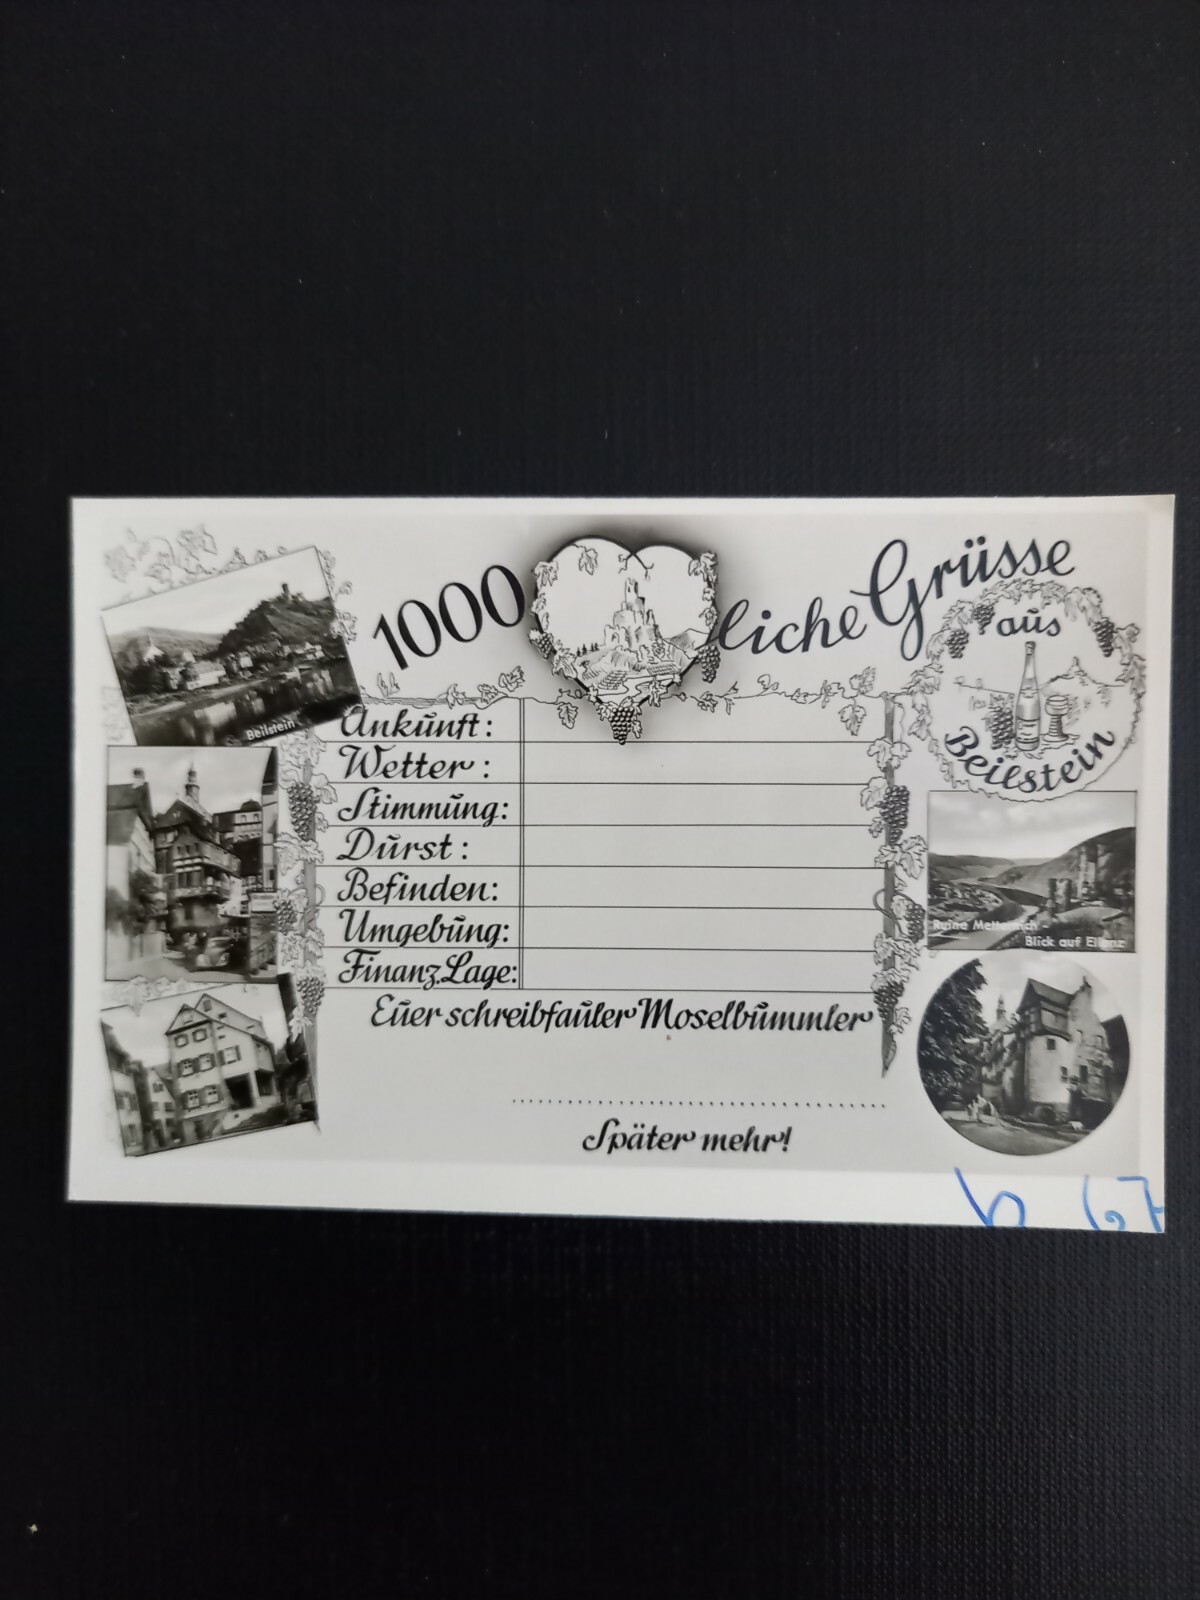 1000 liche Grüsse
aus
Beilstein
Beilstein
Ankunft:
Wetter:
Stimmung:
Durst:
Befinden:
Umgebung:
Finanz.Lage:
Ruine Metternich -
Blick auf Ellenz
Euer schreibfauler Moselbummler
Später mehr!